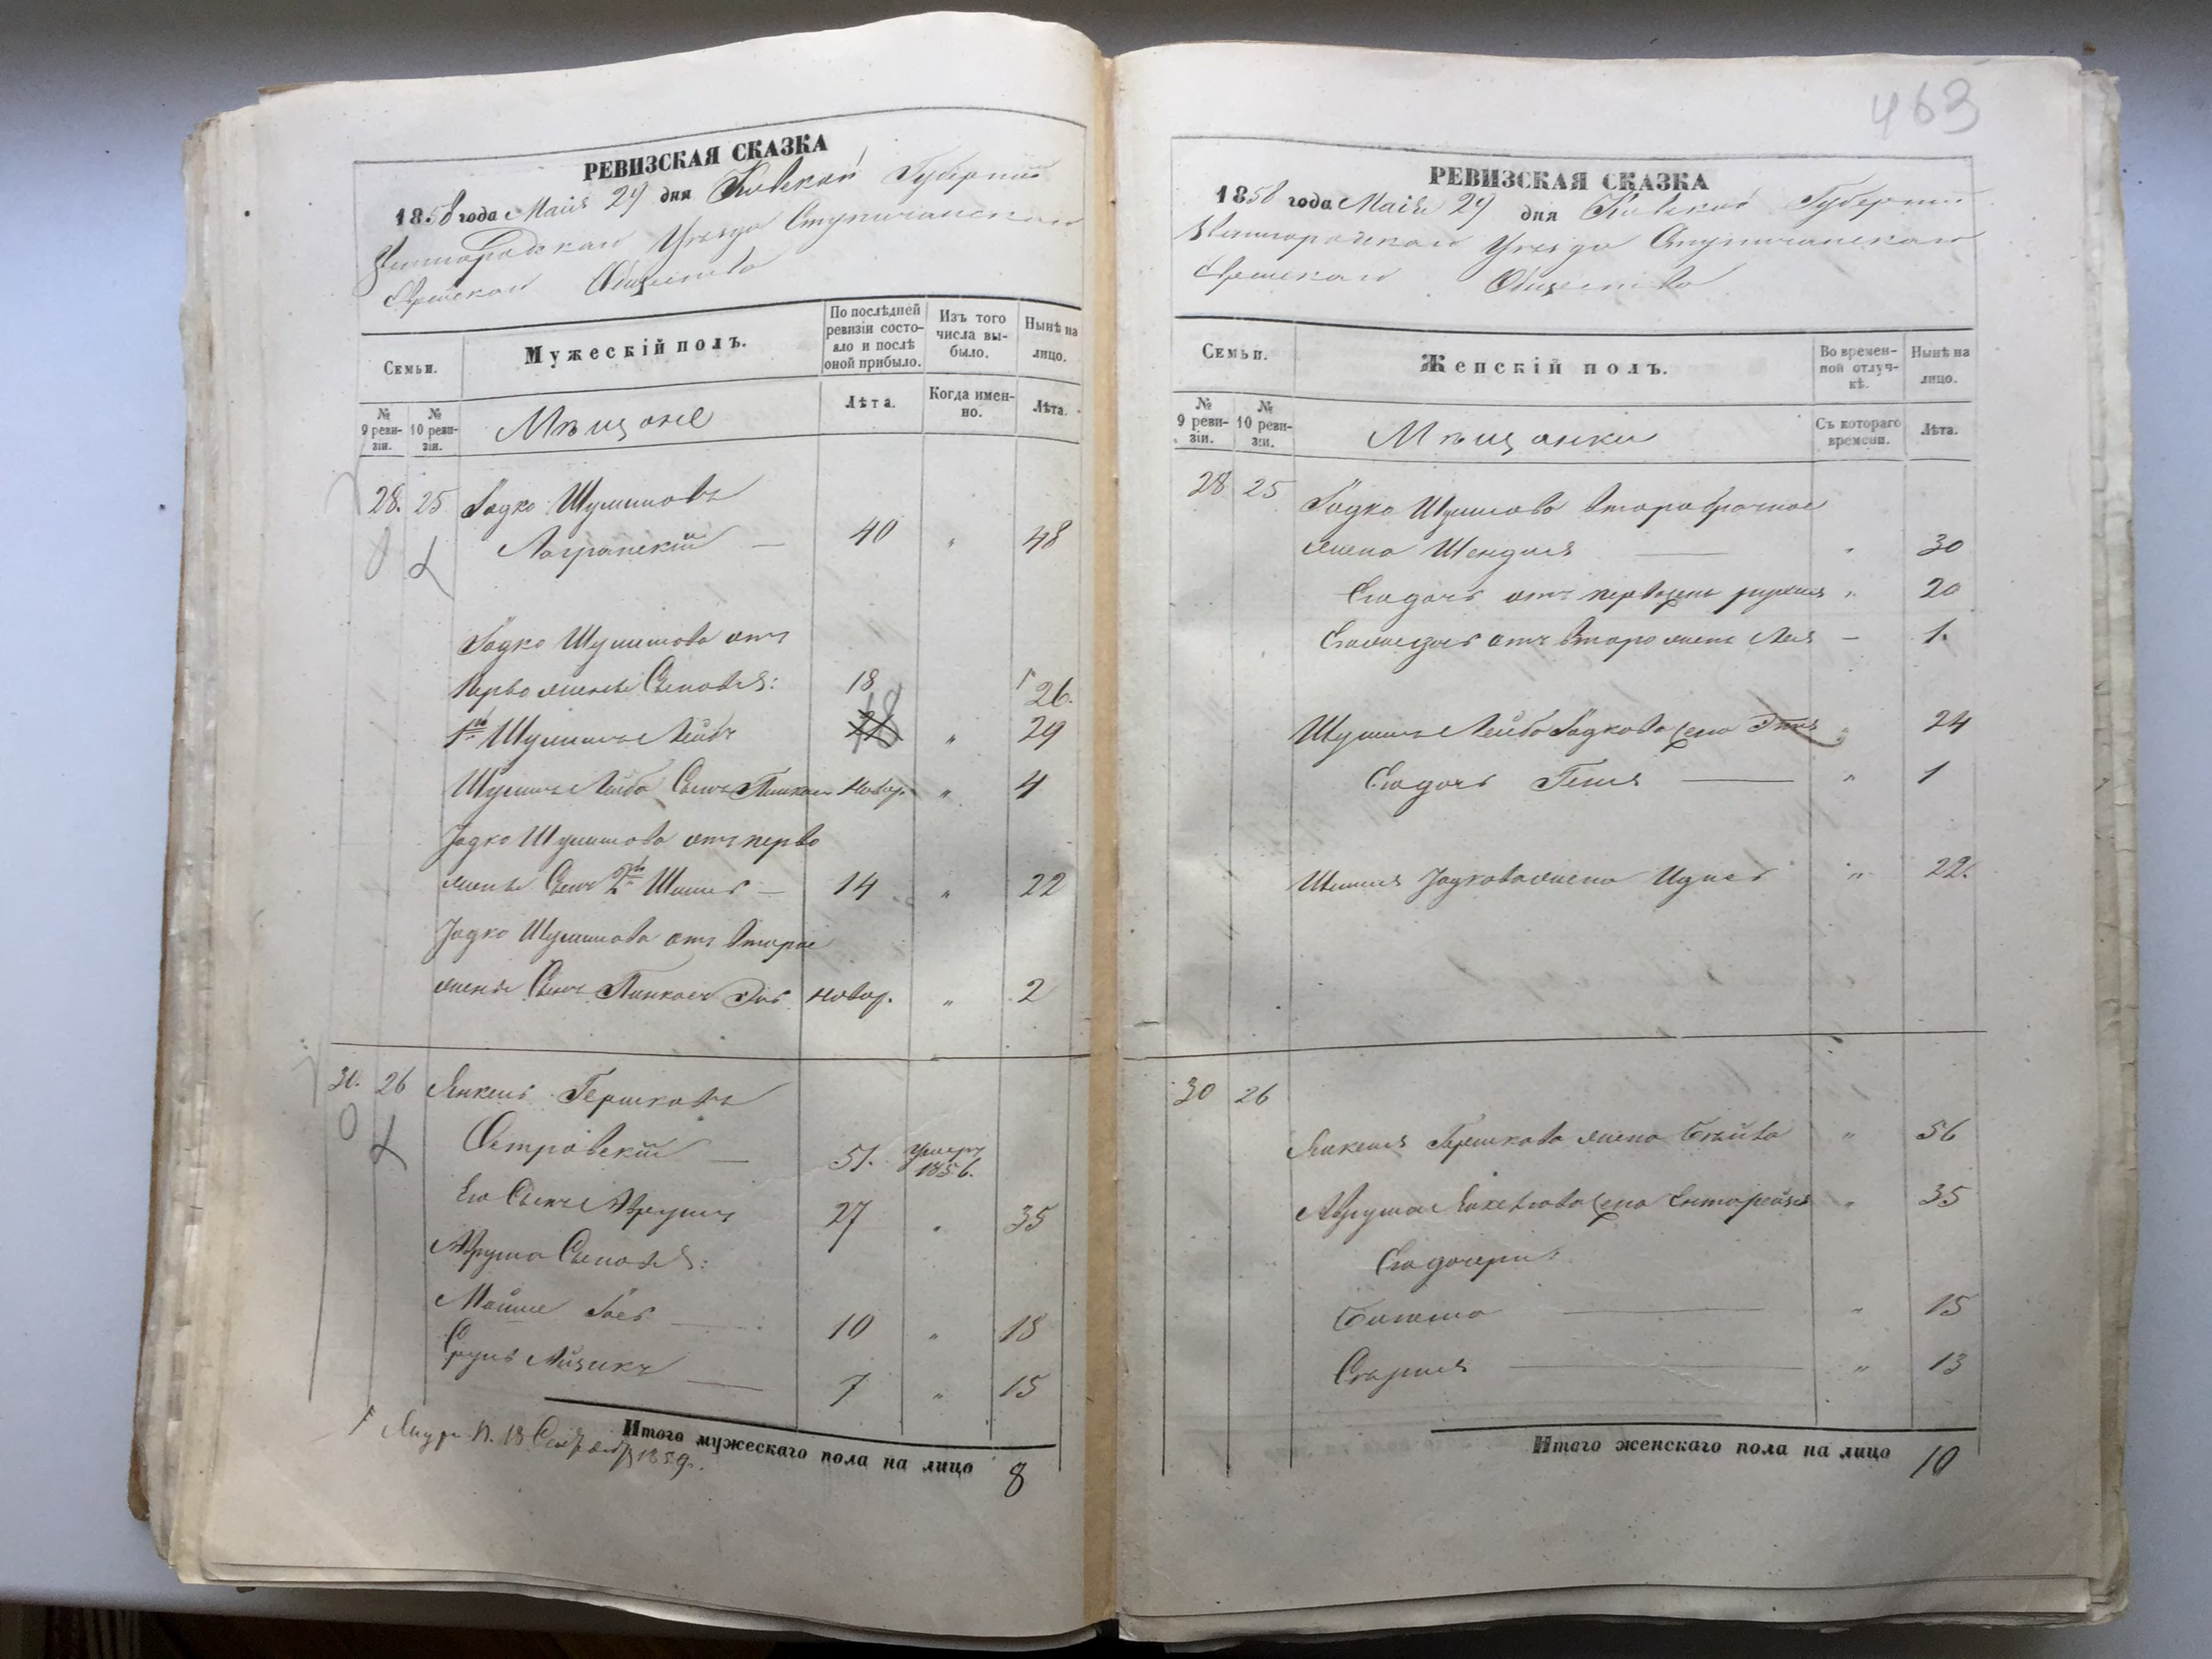 РЕВИЗСКАЯ СКАЗКА
1858 года Маія 29 дня Кіевской Губерніи
Звенигородскаго Уѣзда
Еврейскаго Общества
Семьи.
Мужескій полъ.
По послѣдней ревизіи состояло и послѣ оной прибыло.
Изъ того числа выбыло.
Нынѣ на лицо.
№ 9 ревизіи.
№ 10 ревизіи.
Мѣщане
Лѣта.
Когда именно.
Лѣта.
28. 25 Іодко Шулимовъ
— 40 " 48
Іодко Шулимова отъ
Перво жены Сыновья: 18 26.
1й Шулимъ Лейбъ 18 " 29
Шулимъ Лейба Сынъ Пинкасъ новор. " 4
Іодко Шулимова отъ перво
жены Сынъ 2й — 14 " 22
Іодко Шулимова отъ второй
жены Сынъ Пинкасъ новор. " 2
30. 26 Янкель Гершковъ
Островскій — 51. умеръ 1856.
Его Сынъ Аврумъ 27 " 35
Аврума Сыновья:
Мойше — 10 " 18
Сруль Айзикъ — 7 " 15
Итого мужескаго пола на лицо 8
18 1859.
463
РЕВИЗСКАЯ СКАЗКА
1858 года Маія 29 дня Кіевской Губерніи
Звенигородскаго Уѣзда
Еврейскаго Общества
Семьи.
Женскій полъ.
Во временной отлучкѣ.
Нынѣ на лицо.
№ 9 ревизіи.
№ 10 ревизіи.
Мѣщанки
Съ котораго времени.
Лѣта.
28 25 Іодко Шулимова второбрачная
жена Шендля — " 30
Его дочь отъ " 20
отъ второ жены Лея — 1.
Шулима Лейба Іодкова жена " 24
Его дочь Геня — " 1
Іодкова жена " 22.
30 26
Янкеля Гершкова жена " 56
Аврума Янкелева жена " 35
Его дочери:
— " 15
— " 13
Итого женскаго пола на лицо 10